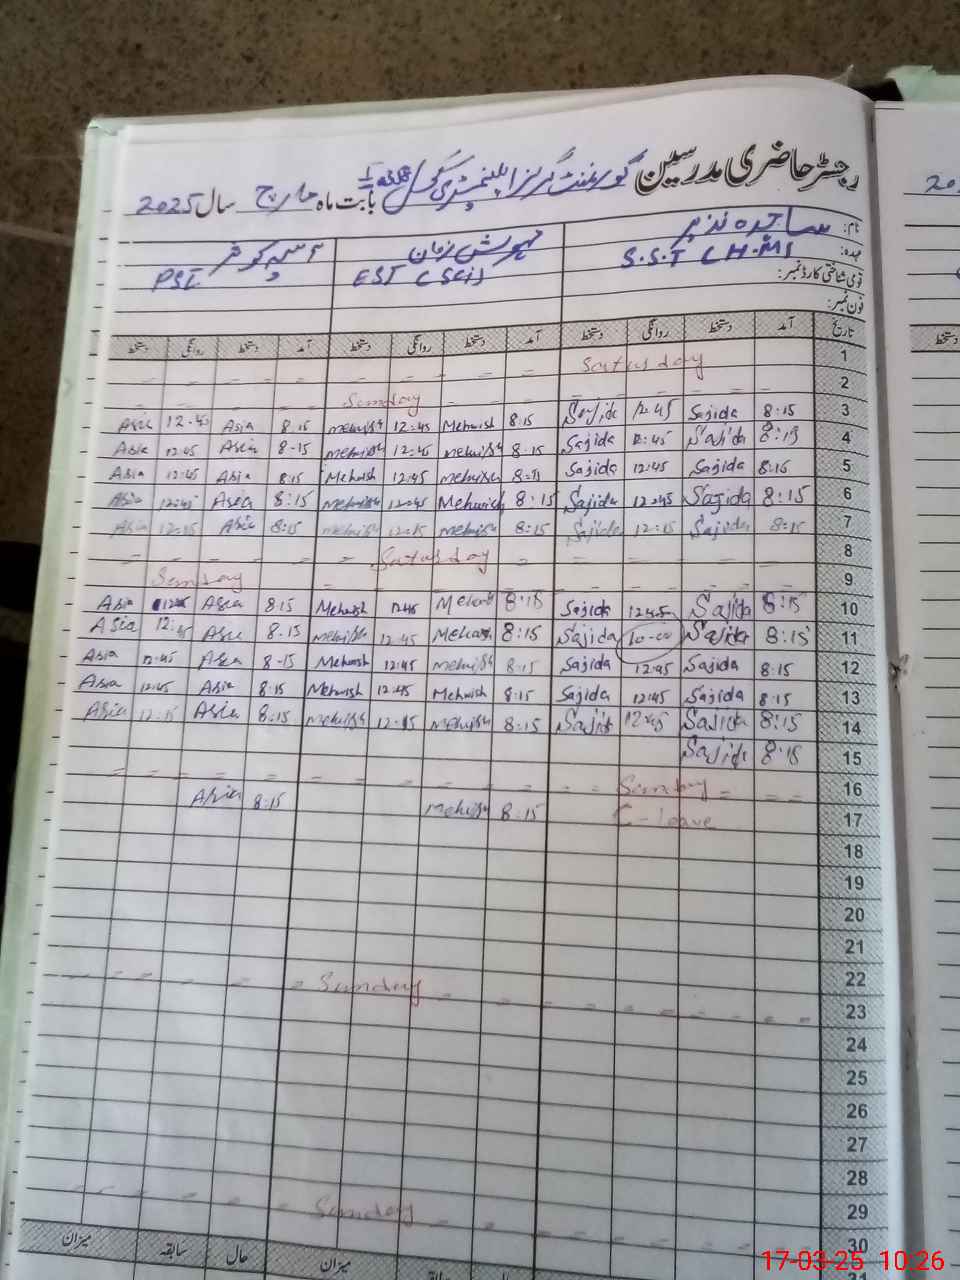 رجسٹر حاضری مدرسین گورنمنٹ گرلز ایلیمنٹری سکول
بابت ماہ مارچ سال 2025
نام: ساجدہ نذیر مہوش زمان آسیہ کوثر
عہدہ: S.S.T (H.M) EST (Sci) PST
قومی شناختی کارڈ نمبر:
فون نمبر:
تاریخ آمد دستخط روانگی دستخط آمد دستخط روانگی دستخط آمد دستخط روانگی دستخط
Saturday 1
Sunday 2
Asia 12:45 Asia 8:15 Mehwish 12:45 Mehwish 8:15 Sajida 12:45 Sajida 8:15 3
Asia 12:45 Asia 8-15 Mehwish 12:45 Mehwish 8:15 Sajida 12:45 Sajida 8:15 4
Asia 12:45 Asia 8:15 Mehwish 12:45 Mehwish 8:15 Sajida 12:45 Sajida 8:15 5
Asia 12:45 Asia 8:15 Mehwish 12:45 Mehwish 8:15 Sajida 12:45 Sajida 8:15 6
Asia 12:15 Asia 8:15 Mehwish 12:15 Mehwish 8:15 Sajida 12:15 Sajida 8:15 7
Saturday 8
Sunday 9
Asia 12:45 Asia 8:15 Mehwish 12:45 Mehwish 8:15 Sajida 12:45 Sajida 8:15 10
Asia 12:45 Asia 8-15 Mehwish 12:45 Mehwish 8:15 Sajida 10-00 Sajida 8:15 11
Asia 12:45 Asia 8-15 Mehwish 12:45 Mehwish 8:15 Sajida 12:45 Sajida 8:15 12
Asia 12:45 Asia 8:15 Mehwish 12:45 Mehwish 8:15 Sajida 12:45 Sajida 8:15 13
Asia 12:15 Asia 8:15 Mehwish 12:15 Mehwish 8:15 Sajida 12:45 Sajida 8:15 14
Sajida 8:15 15
Sunday 16
Asia 8:15 Mehwish 8:15 C-leave 17
18
19
20
21
22
Sunday 23
24
25
26
27
28
29
Sunday 30
میزان حال سابقہ میزان
17-03-25 10:26